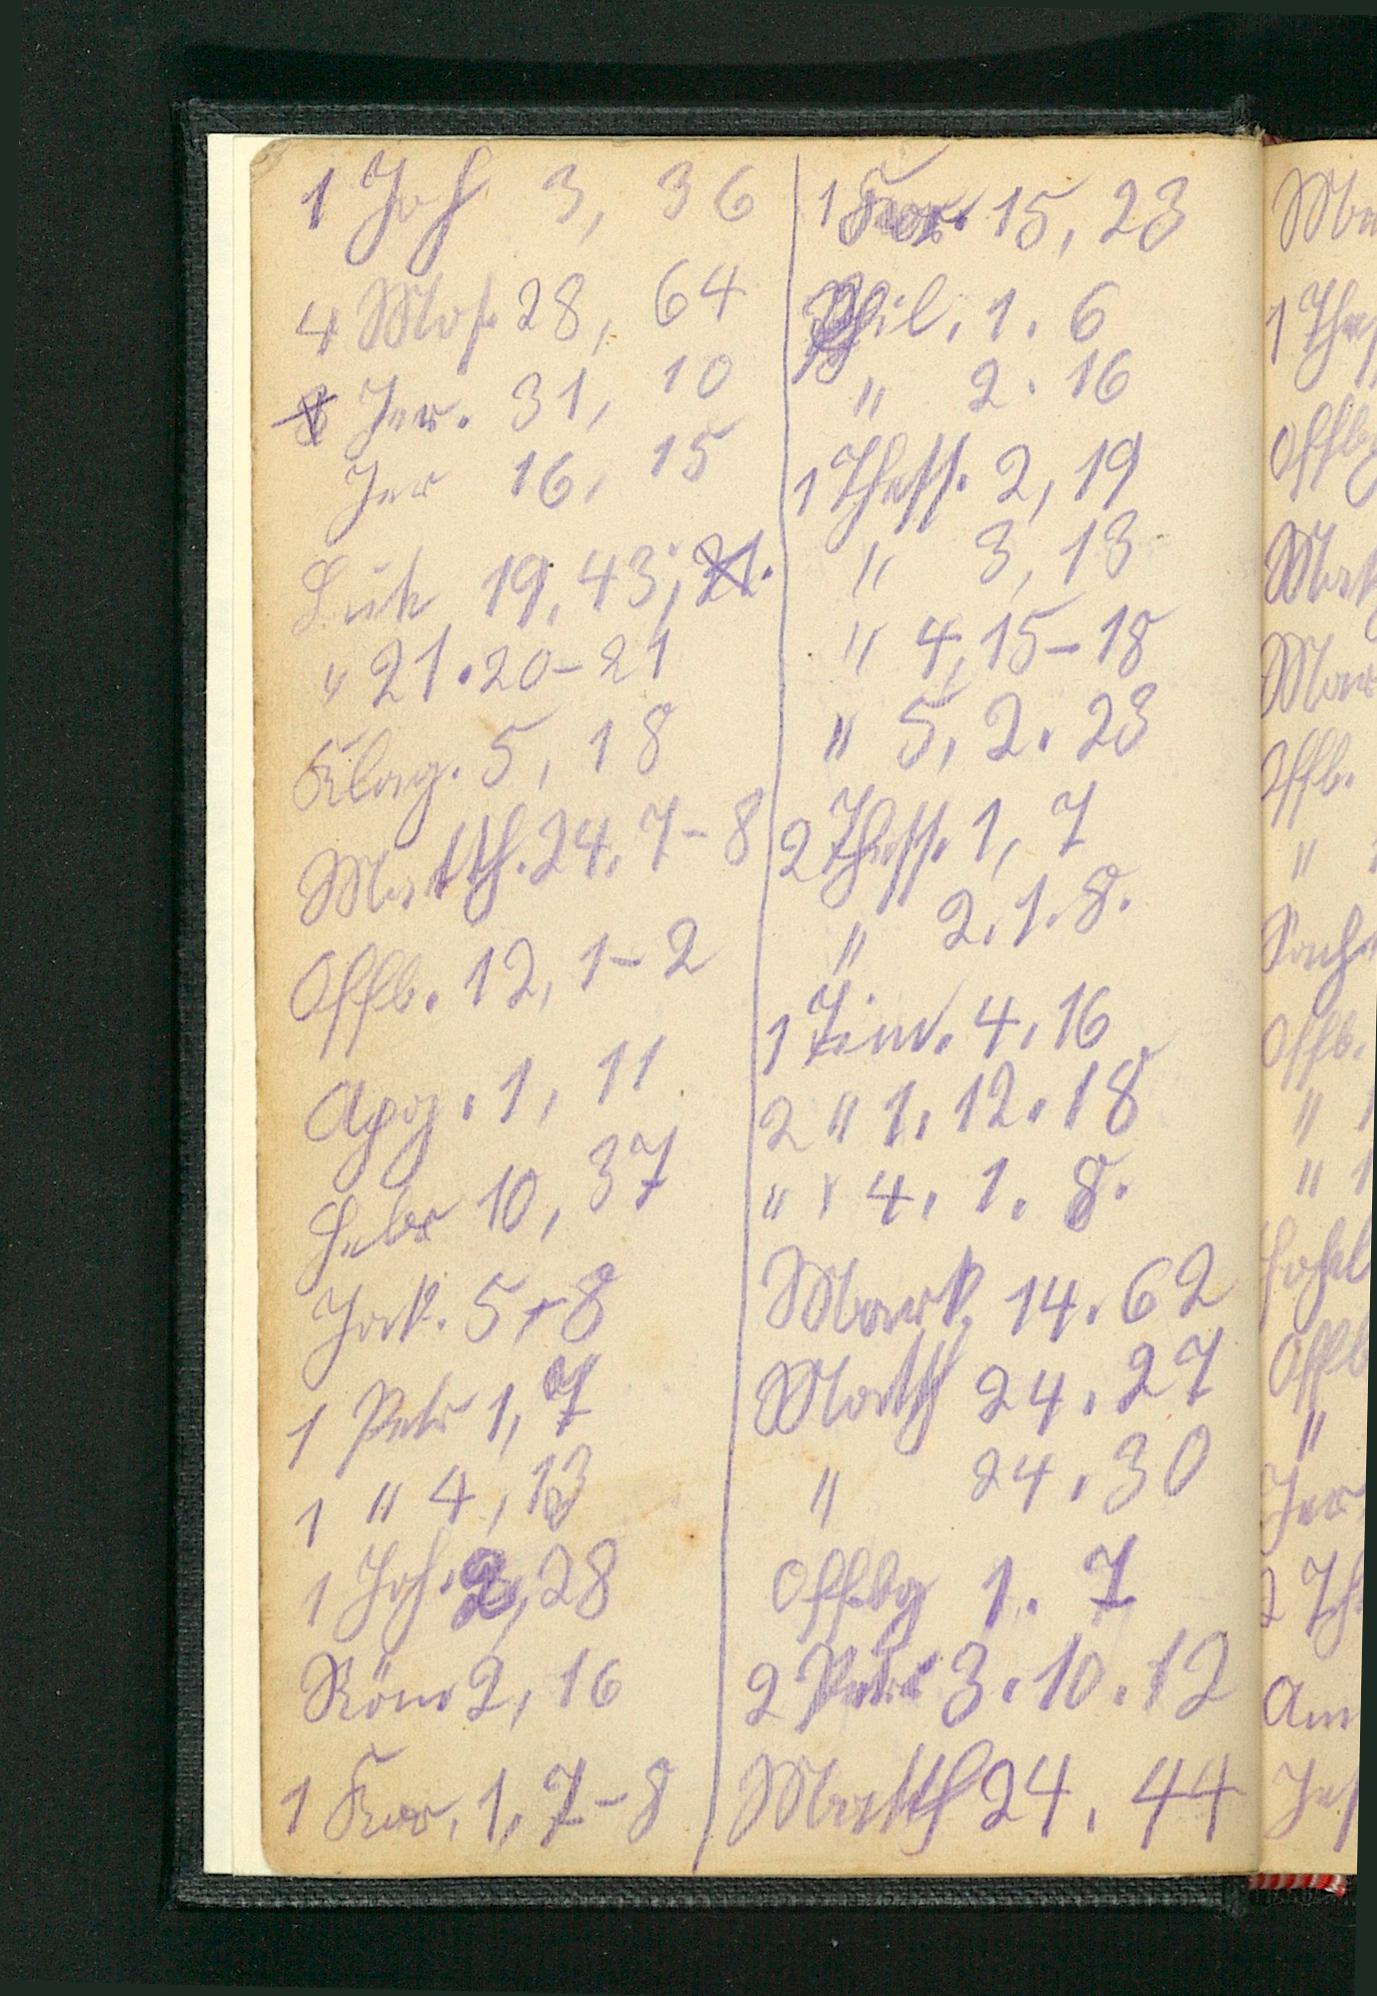 1 Joh 3, 36
4 Mos. 28, 64
Jer. 31, 10
Jer 16, 15
Luk 19, 43; 21.
" 21. 20-21
Klag. 5, 18
Matth. 24. 7-8
Offb. 12, 1-2
Apg. 1, 11
Hebr 10, 37
Jak. 5, 8
1 Petr 1, 7
1 " 4, 13
1 Joh. 2, 28
Röm 2, 16
1 Kor. 1, 7-8
1 Kor. 15, 23
Phil. 1. 6
" 2. 16
1 Thess. 2, 19
" 3, 13
" 4, 15-18
" 5, 2. 23
2 Thess. 1, 7
" 2. 1. 8.
1 Tim. 4. 16
2 " 1. 12. 18
" " 4. 1. 8.
Mark. 14. 62
Matth 24. 27
" 24. 30
Offbg 1. 7
2 Petr 3. 10. 12
Matth 24. 44
1 Thes
Offbg
Offb.
"
Offb.
" 1
" 1
"
Jer
Am